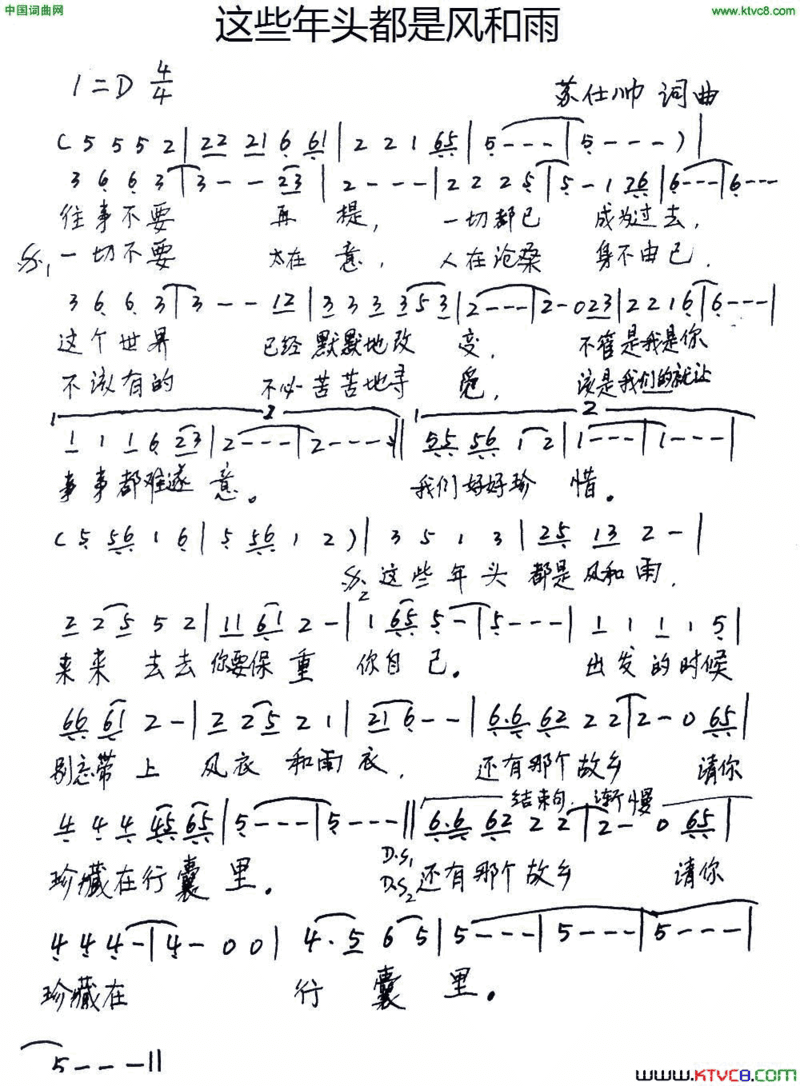 中国词曲网
www.ktvc8.com
这些年头都是风和雨
1=D 4/4
苏仕帅 词曲
( 5 5 5 2 | 22 21 6 61 | 2 2 1 65 | 5 - - - | 5 - - - ) |
3 6 6 3 | 3 - - 23 | 2 - - - | 2 2 2 5 | 5 - 1 26 | 6 - - - | 6 - - -
往事不要 再提， 一切都已 成为过去，
𝄋1 一切不要 太在意， 人在沧桑 身不由己．
3 6 6 3 | 3 - - 12 | 3 3 3 3 5 3 | 2 - - - | 2 - 023 | 2 2 1 6 | 6 - - - |
这个世界 已经默默地改变， 不管是我是你
不该有的 不必苦苦地寻觅， 该是我们的就让
1 2
1 1 1 6 23 | 2 - - - | 2 - - - || 55 56 1 2 | 1 - - - | 1 - - - |
事事都难遂意。 我们好好珍惜。
( 5 56 1 6 | 5 56 1 2 ) | 3 5 1 3 | 25 13 2 - |
𝄋2 这些年头 都是风和雨．
2 2 5 5 2 | 11 61 2 - | 1 65 5 - | 5 - - - | 1 1 1 1 5 |
来来去去你要保重 你自己． 出发的时候
66 61 2 - | 2 2 5 2 1 | 21 6 - - | 6.6 62 2 2 | 2 - 0 65 |
别忘带上 风衣和雨衣， 还有那个故乡 请你
结束句 渐慢
4 4 4 45 65 | 5 - - - | 5 - - - || 6.6 62 2 2 | 2 - 0 65 |
珍藏在行囊里。 D.S1 D.S2 还有那个故乡 请你
4 4 4 - | 4 - 0 0 | 4 . 5 6 5 | 5 - - - | 5 - - - | 5 - - - |
珍藏在 行囊里。
5 - - - ||
www.KTVC8.com